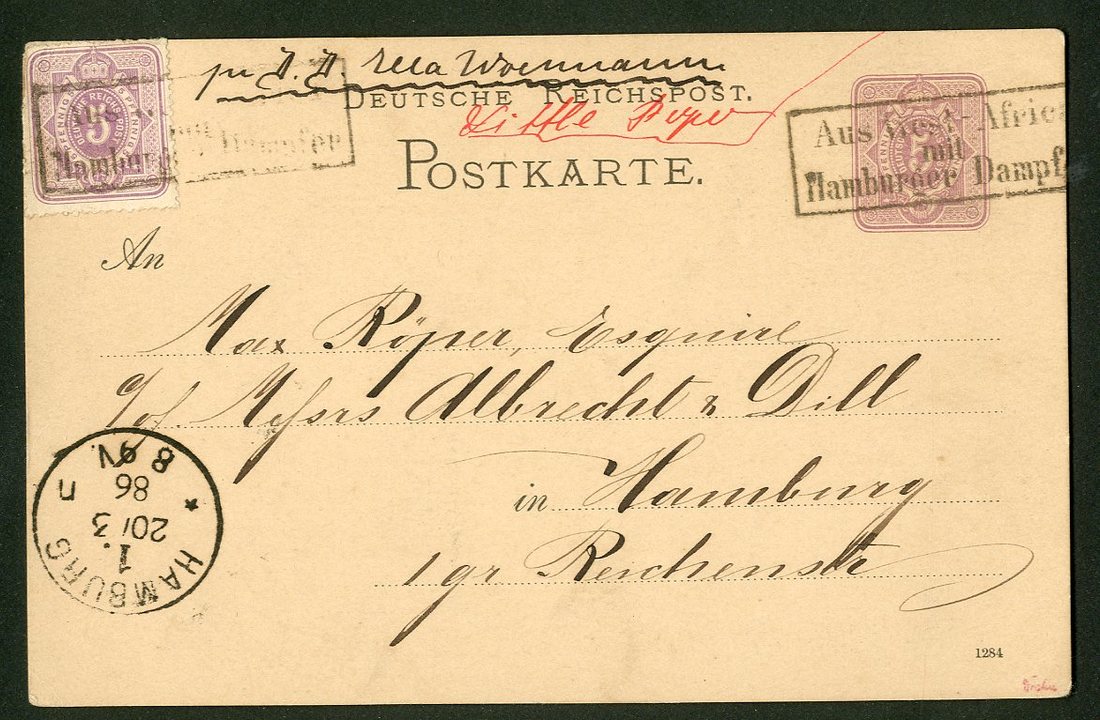 pr D. D. Ella Woermann
DEUTSCHE REICHSPOST.
Little Popo
POSTKARTE.
5 PFENNIG
DEUTSCHE REICHSPOST
5
Aus
mit
Hamburg Dampfer
Aus West-Africa
mit
Hamburger Dampf
An
Max Röper, Esquire
c/of Messrs Albrecht & Dill
in Hamburg
1 gr Reichenstr
HAMBURG
1.
20/3
86
8-9V.
1284